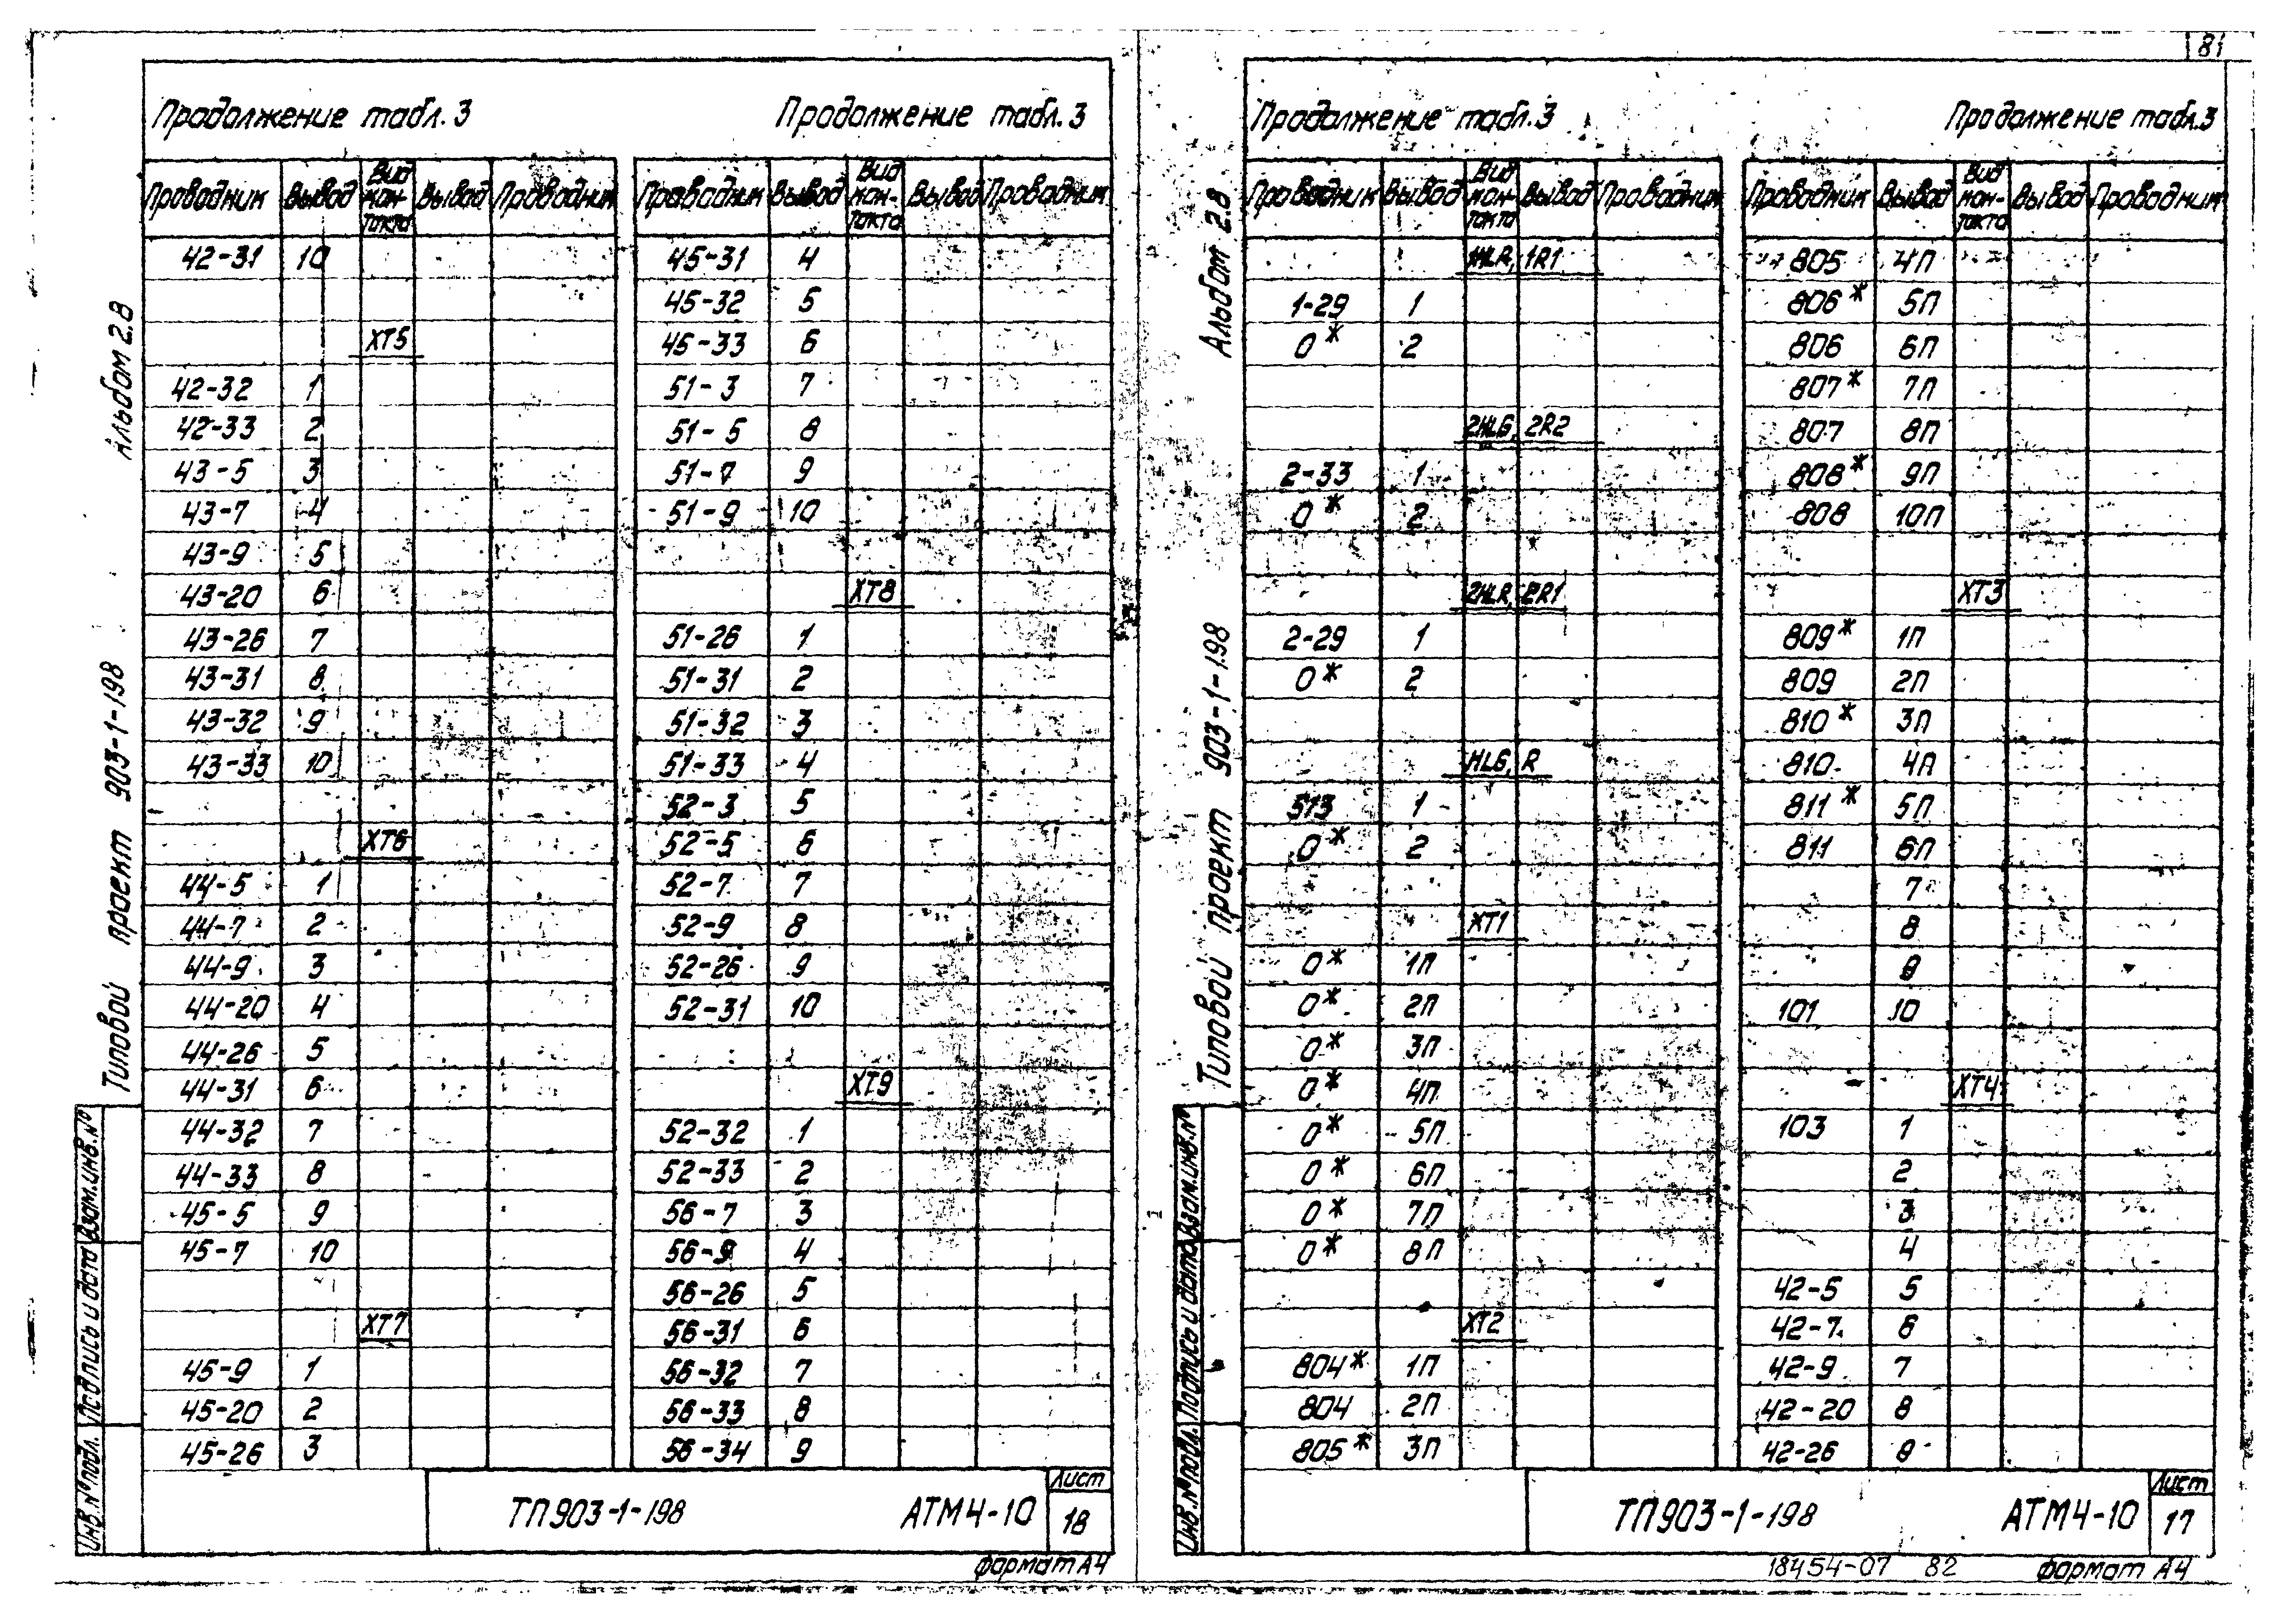 81
Альбом 2.8
Типовой проект 903-1-198
Взам.инв.№
Подпись и дата
Инв.№подл.
Продолжение табл.3
Проводник Вывод Вид кон-такта Вывод Проводник
42-31 10
XT5
42-32 1
42-33 2
43-5 3
43-7 4
43-9 5
43-20 6
43-26 7
43-31 8
43-32 9
43-33 10
XT6
44-5 1
44-7 2
44-9 3
44-20 4
44-26 5
44-31 6
44-32 7
44-33 8
45-5 9
45-7 10
XT7
45-9 1
45-20 2
45-26 3
Продолжение табл.3
Проводник Вывод Вид кон-такта Вывод Проводник
45-31 4
45-32 5
45-33 6
51-3 7
51-5 8
51-7 9
51-9 10
XT8
51-26 1
51-31 2
51-32 3
51-33 4
52-3 5
52-5 6
52-7 7
52-9 8
52-26 9
52-31 10
XT9
52-32 1
52-33 2
56-7 3
56-9 4
56-26 5
56-31 6
56-32 7
56-33 8
56-34 9
ТП903-1-198 АТМ4-10
Лист
18
Формат А4
Альбом 2.8
Типовой проект 903-1-198
Взам.инв.№
Подпись и дата
Инв.№подл.
Продолжение табл.3
Проводник Вывод Вид кон-такта Вывод Проводник
1HLR, 1R1
1-29 1
0* 2
2HLG, 2R2
2-33 1
0* 2
2HLR, 2R1
2-29 1
0* 2
HLG, R
513 1
0* 2
XT1
0* 1П
0* 2П
0* 3П
0* 4П
0* 5П
0* 6П
0* 7П
0* 8П
XT2
804* 1П
804 2П
805* 3П
Продолжение табл.3
Проводник Вывод Вид кон-такта Вывод Проводник
805 4П
806* 5П
806 6П
807* 7П
807 8П
808* 9П
808 10П
XT3
809* 1П
809 2П
810* 3П
810 4П
811* 5П
811 6П
7
8
9
101 10
XT4
103 1
2
3
4
42-5 5
42-7 6
42-9 7
42-20 8
42-26 9
ТП903-1-198 АТМ4-10
Лист
17
18454-07 82 Формат А4